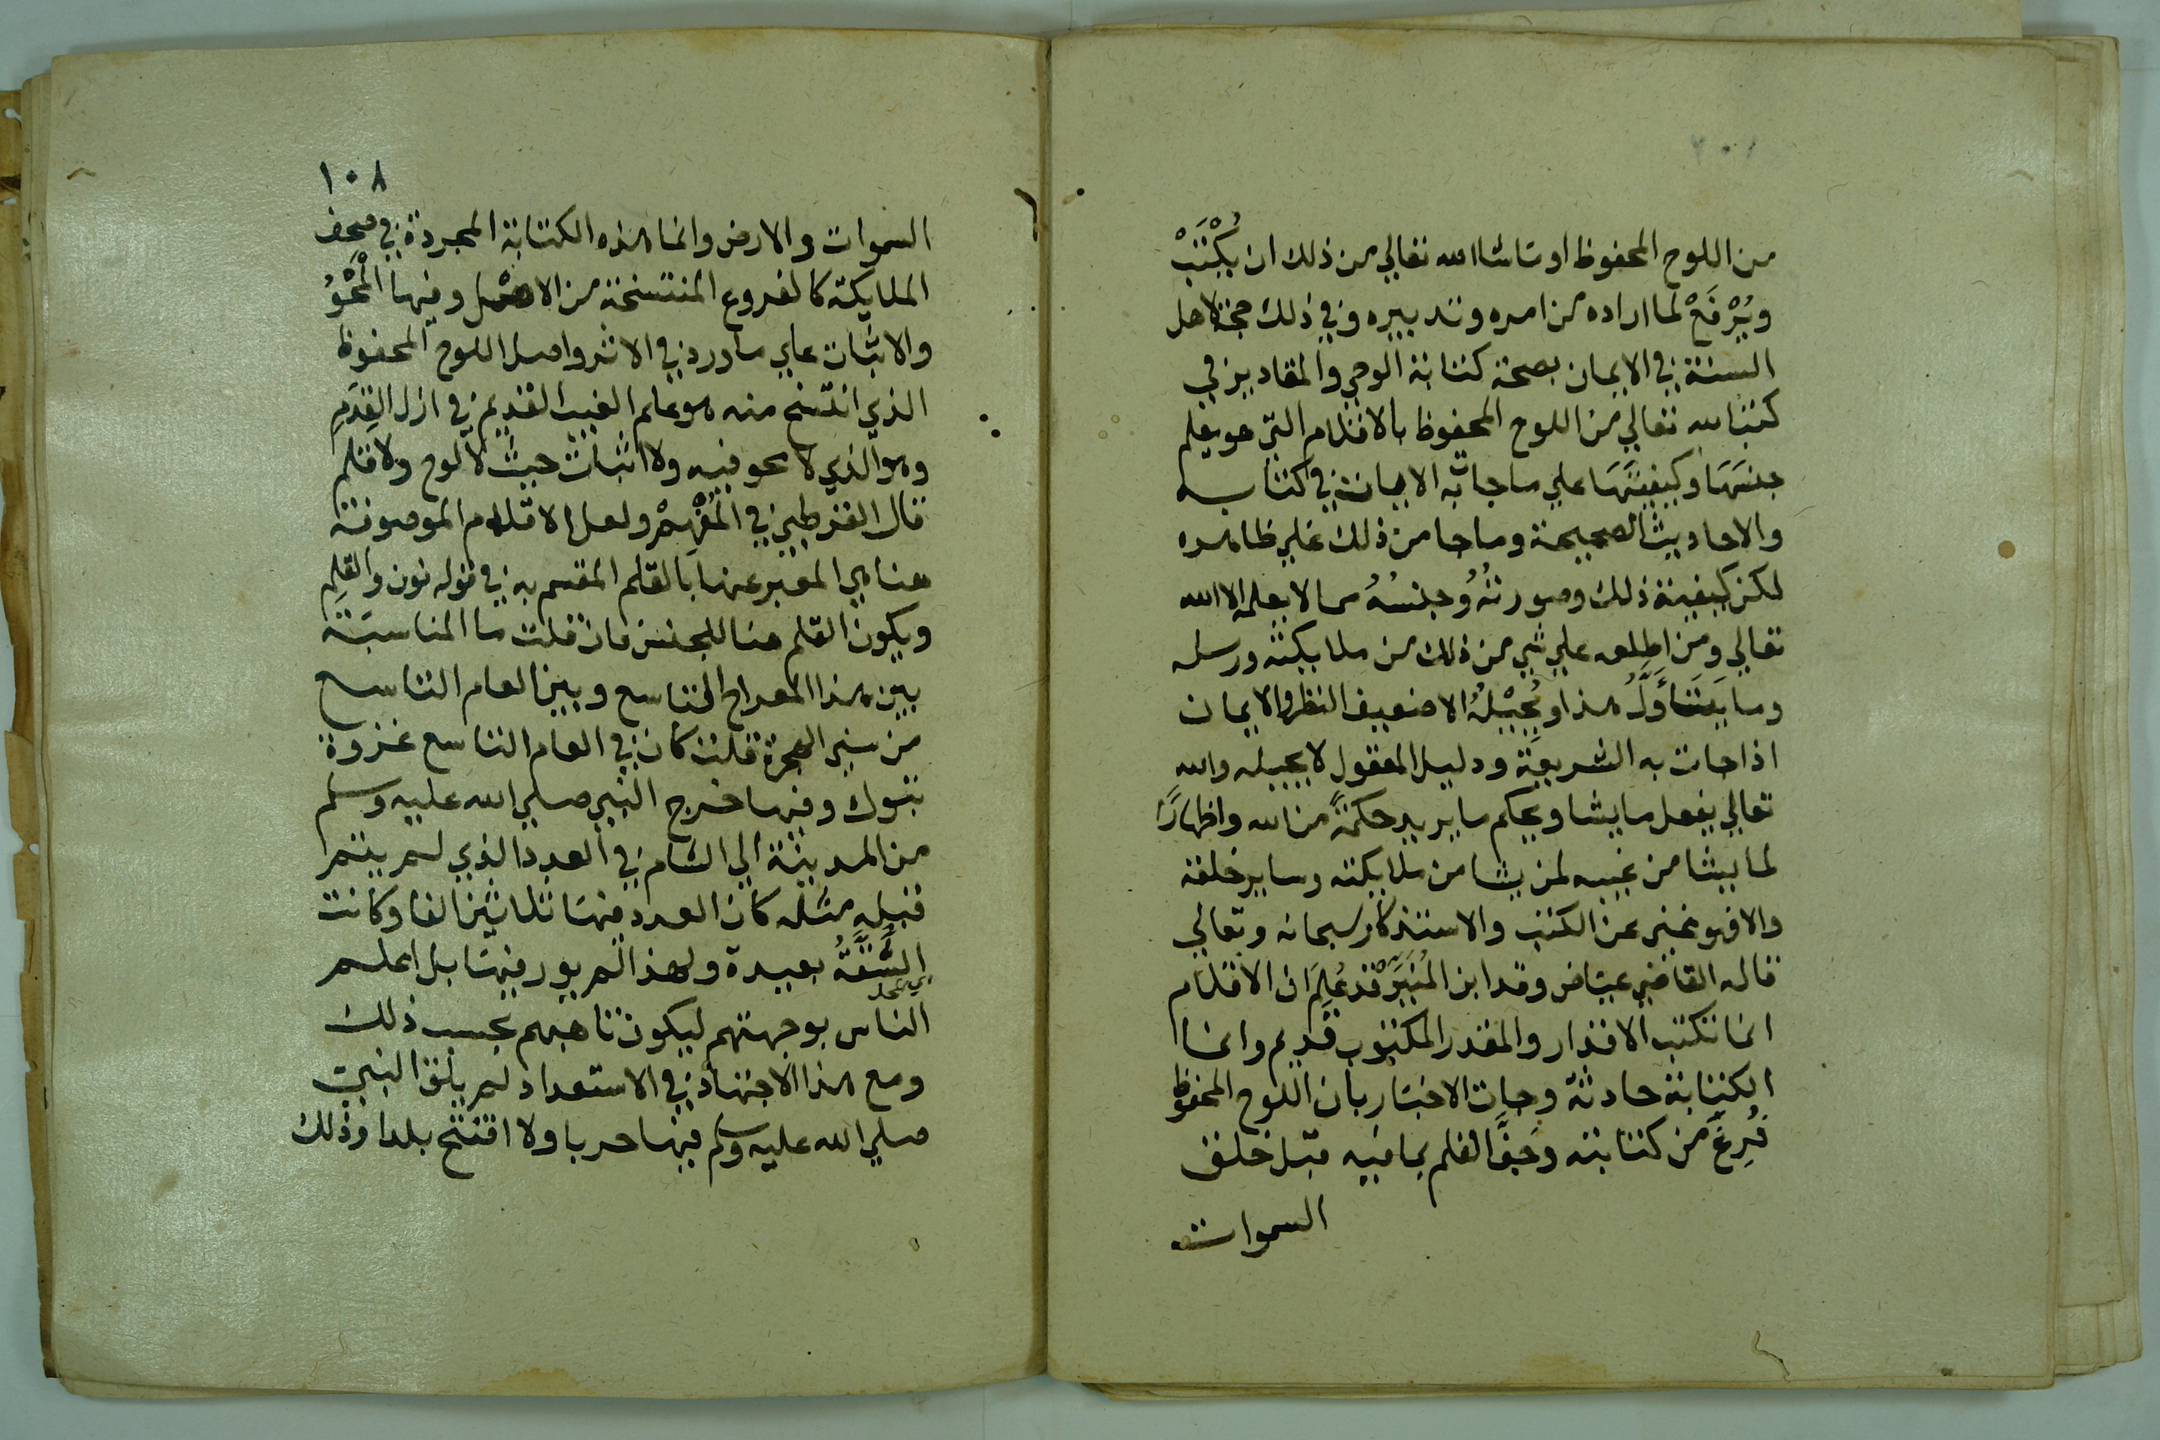 من اللوح المحفوظ او ماشا الله تعالي من ذلك ان يُكْتَبْ
ويُرْفَعْ لما اراده من امره وتدبيره وفي ذلك حجة لاهل
السنة في الايمان بصحة كتابة الوحي والمقادير في
كتب الله تعالي من اللوح المحفوظ بالاقلام التي هو يعلم
جنسَهَا وكيفيتَهَا علي ما جات به الايات في كتابه
والاحاديث الصحيحة وما جا من ذلك علي ظاهره
لكن كيفية ذلك وصورتُهُ وجنسُهُ مما لا يعلمه الا الله
تعالي ومن اطلعه علي شي من ذلك من ملايكته ورسله
وما يَتَأَوَّلُ هذا ويُحِيْلُهُ الا ضعيف النظر والايمان
اذا جات به الشريعة ودليل المعقول لا يحيله والله
تعالي يفعل ما يشا ويحكم ما يريد حكمةً من الله واظهارًا
لما يشا من غيبه لمن يشا من ملايكته وساير خلقه
والا فهو غني عن الكتب والاستذكار سبحانه وتعالي
قاله القاضي عياض وقد ابن المُنَيِّر قد عُلِمَ ان الاقلام
انما تكتب الاقدار والمقدر المكتوب قديم وانما
الكتابة حادثة وجات الاخبار بان اللوح المحفوظ
فُرِغَ من كتابته وجَفَّ القلم بما فيه قبل خلق
السموات
١٠٨
السموات والارض وانما هذه الكتابة المجردة في صحف
الملايكة كالفروع المنتسخة من الاصل وفيها الْمَحْوُ
والاثبات علي ما ورد في الاثر واصل اللوح المحفوظ
الذي انتسخ منه هو علم الغيب القديم في ازل القِدَمِ
وهو الذي لا محو فيه ولا اثبات حيث لا لوح ولا قلم
قال القرطبي في الْمُفْهِمْ ولعل الاقلام الموصوفة
هنا هي المعبر عنها بالقلم المقسم به في قوله نون والقلمِ
ويكون القلم هنا للجنس فان قلت ما المناسبة
بين هذا المعراج التاسع وبين العام التاسع
من سني الهجرة قلت كان في العام التاسع غزوة
تبوك وفيها خرج النبي صلي الله عليه وسلم
من المدينة الي الشام في العدد الذي لم يتم
قبله مثله كان العدد فيها ثلاثين الفا وكانت
الشُّقَّةُ بعيدة ولهذا لم يور فيها بل اعلم
الناس بوجهتهم ليكون تاهبهم بحسب ذلك
ومع هذا الاجتهاد في الاستعداد لم يلق النبي
صلي الله عليه وسلم فيها حربا ولا افتتح بلدا وذلك